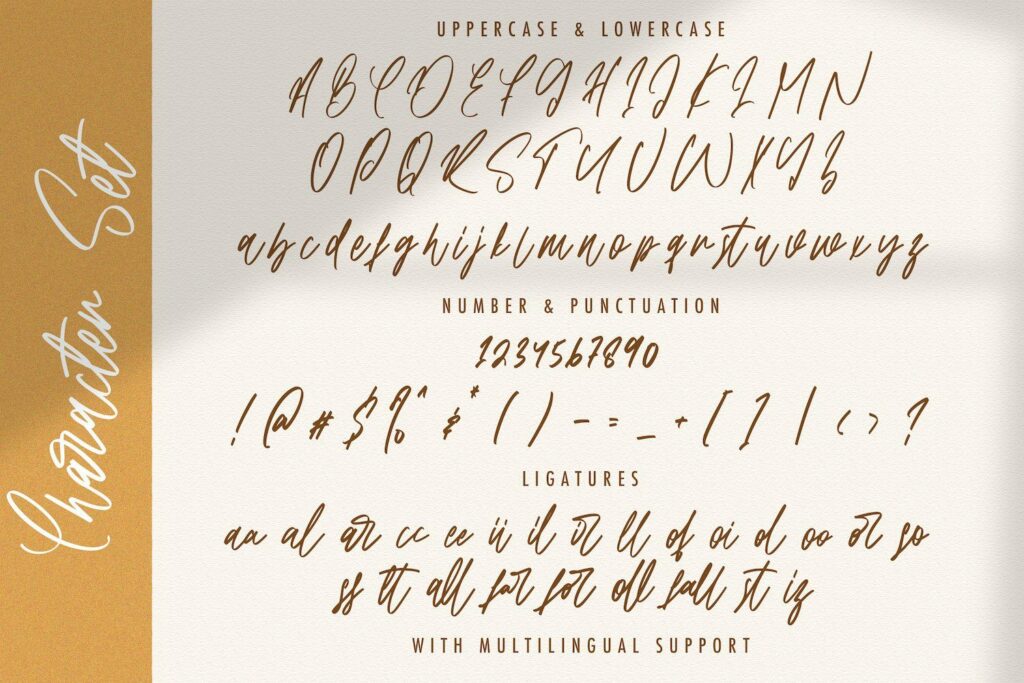 Character Set
UPPERCASE & LOWERCASE
A B C D E F G H I J K L M N
O P Q R S T U U W X Y Z
a b c d e f g h i j k l m n o p q r s t u v w x y z
NUMBER & PUNCTUATION
1 2 3 4 5 6 7 8 9 0
! @ # $ % ^ & * ( ) - = _ + [ ] | < > ?
LIGATURES
aa al ar cc ee ii il ir ll of oi ol oo or so
ss tt all far for oll fall st iz
WITH MULTILINGUAL SUPPORT